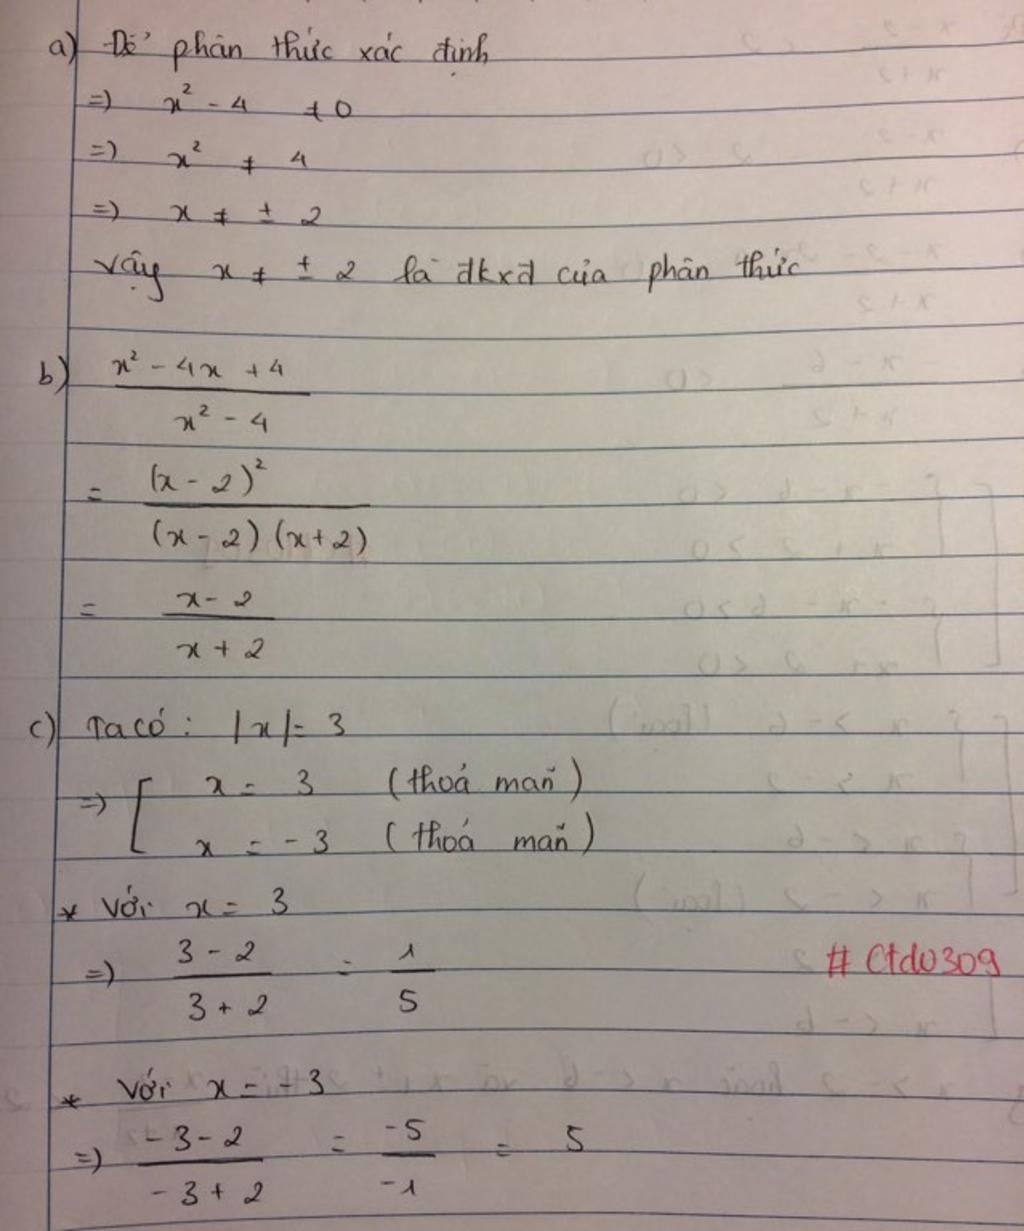 a) Để phân thức xác định
=) x² - 4 ≠ 0
=) x² ≠ 4
=) x ≠ ± 2
Vậy x ≠ ± 2 là đkxđ của phân thức
b) x² - 4x + 4
x² - 4
= (x - 2)²
(x - 2) (x + 2)
= x - 2
x + 2
c) Ta có : |x| = 3
=) [ x = 3 (thoả mãn)
x = -3 (thoả mãn)
* Với x = 3
=) 3 - 2 = 1
3 + 2 5
# Ctdu309
* Với x = -3
=) -3 - 2 = -5 = 5
-3 + 2 -1